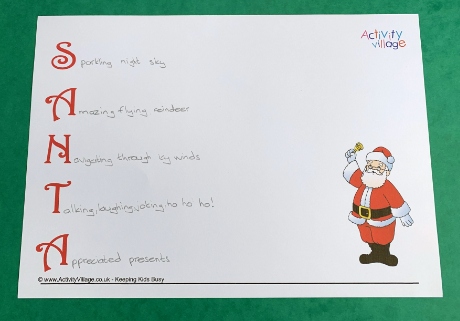 Activity
Village
Sparkling night sky
Amazing flying reindeer
Navigating through icy winds
Talking, laughing, joking ho ho ho!
Appreciated presents
© www.ActivityVillage.co.uk - Keeping Kids Busy